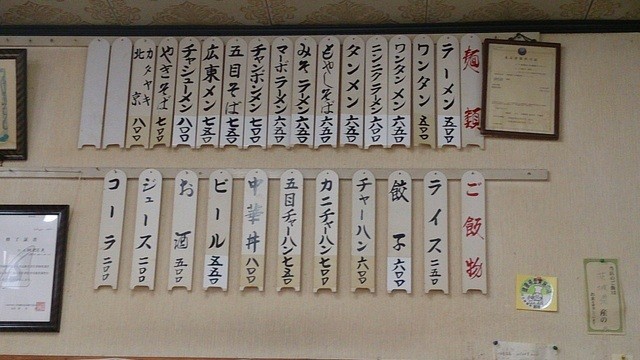 麺類
ラーメン 五〇〇
ワンタン 五〇〇
ワンタンメン 六五〇
ニンニクラーメン 六〇〇
タンメン 六五〇
もやしそば 六五〇
みそラーメン 六五〇
マーボラーメン 六五〇
チャンポンメン 七〇〇
五目そば 七五〇
広東メン 七五〇
チャシューメン 八〇〇
やきそば 七〇〇
カタヤキ
北京 八〇〇
ご飯物
ライス 二五〇
餃子 六〇〇
チャーハン 六〇〇
カニチャーハン 七〇〇
五目チャーハン 七五〇
中華丼 八〇〇
ビール 五五〇
お酒 五〇〇
ジュース 二〇〇
コーラ 二〇〇